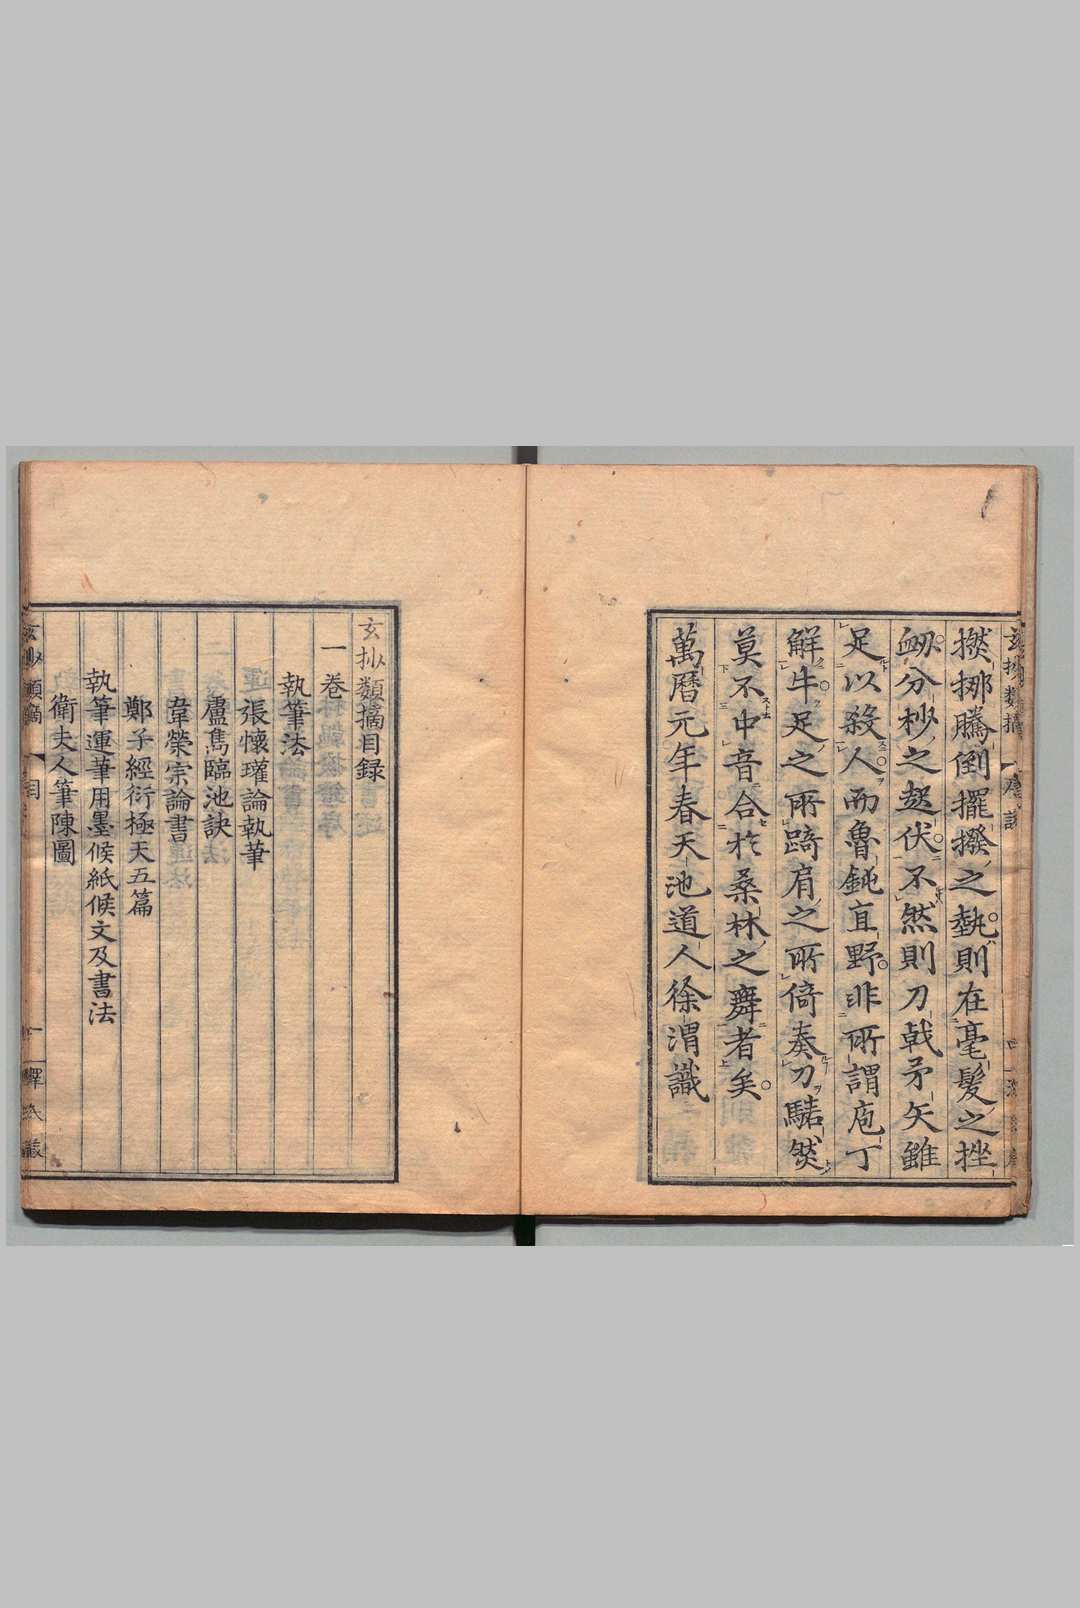 撚挪騰倒擺撥之埶則在毫髮之挫
衂分杪之起伏不然則刀戟矛矢雖
足以殺人而魯鈍直野非所謂庖丁
解牛足之所踦肩之所倚奏刀騞然
莫不中音合於桑林之舞者矣
萬曆元年春天池道人徐渭識
玄抄類摘目録
一卷
執筆法
張懷瓘論執筆
盧雋臨池訣
韋榮宗論書
鄭子經衍極天五篇
執筆運筆用墨候紙候文及書法
衛夫人筆陳圖
玄抄類摘
目